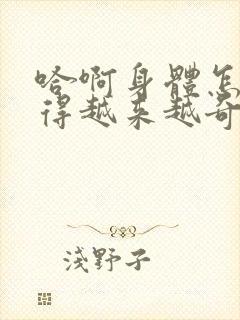 哈啊身體怎
得越來越奇
淺野子